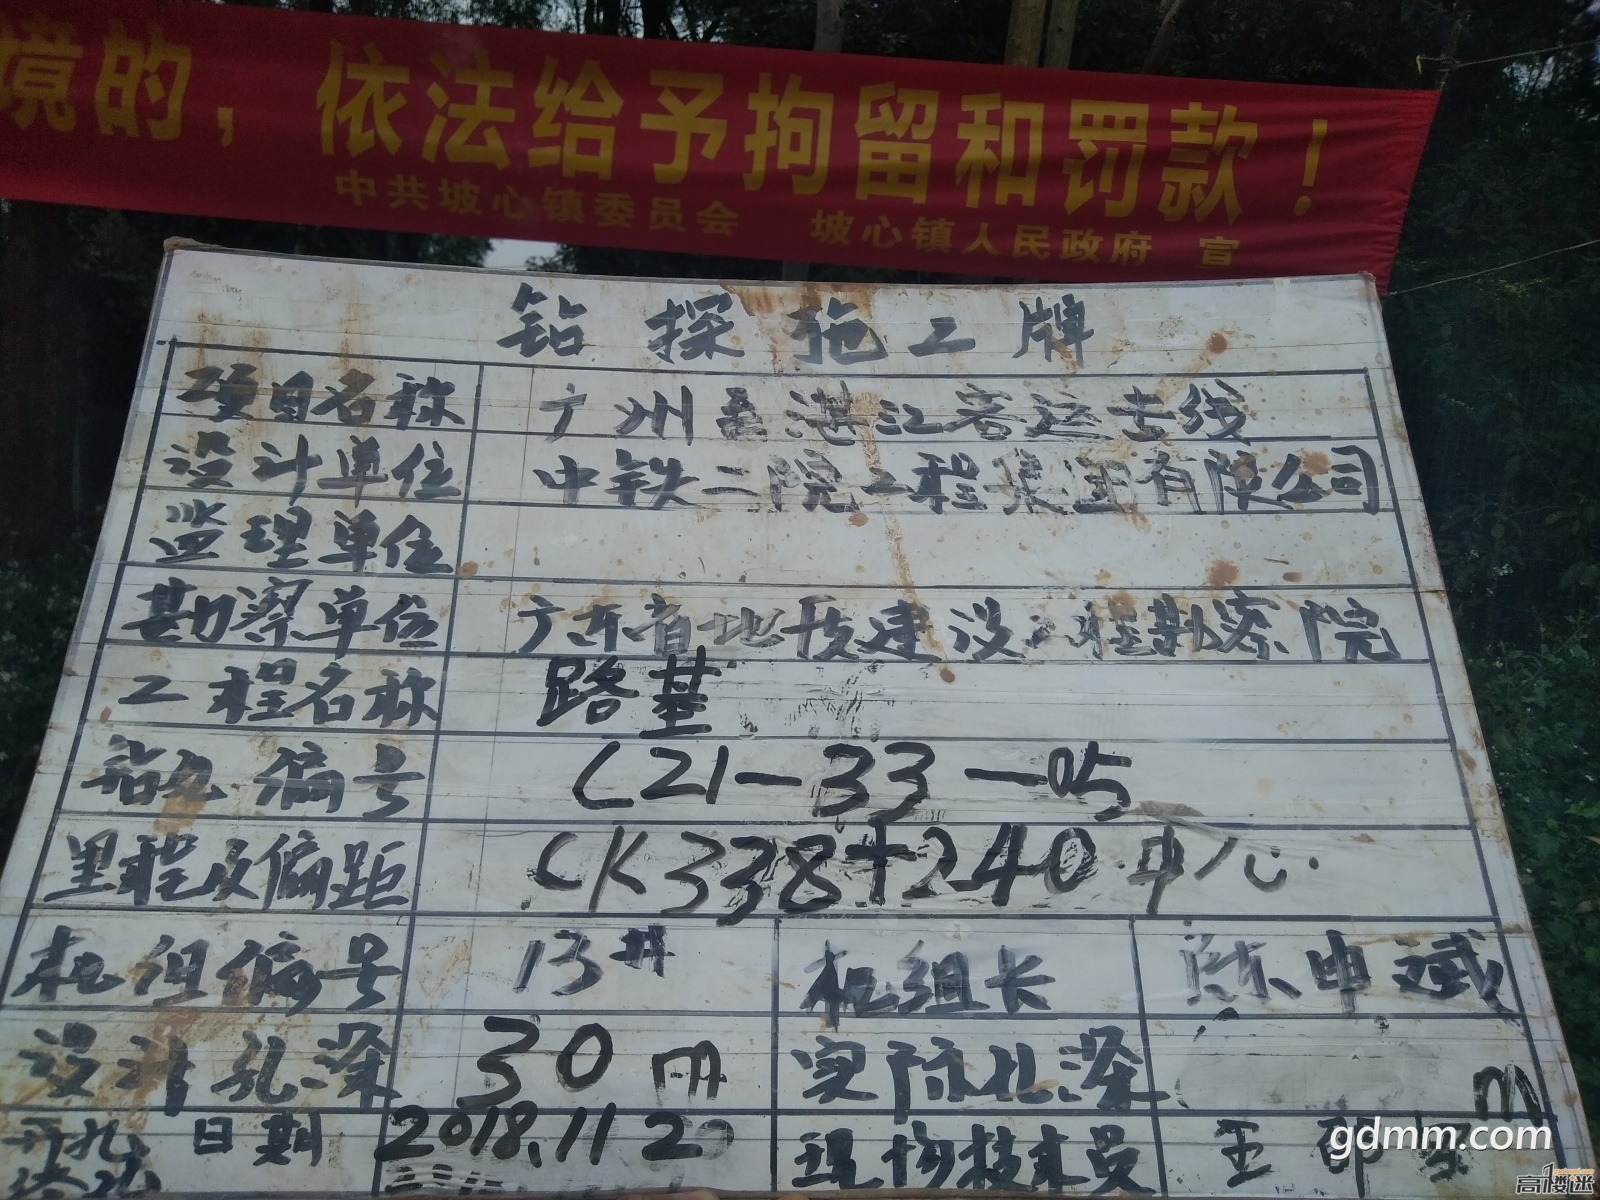 境的，依法给予拘留和罚款！
中共坡心镇委员会 坡心镇人民政府 宣
钻探施工牌
项目名称 广州至湛江客运专线
设计单位 中铁二院工程集团有限公司
监理单位
勘察单位 广东省地质建设工程勘察院
工程名称 路基
钻孔编号 C21-33-05
里程及偏距 CK338+240 中心
机组编号 13# 机组长 陈申斌
设计孔深 30m 实际孔深 m
开孔日期 2018.11 20 现场技术员 王
终孔
gdmm.com
高楼迷